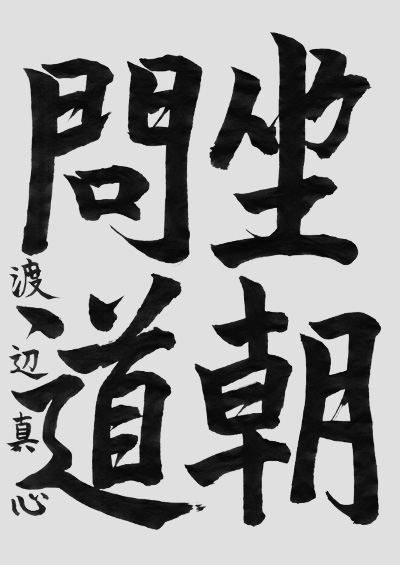 坐朝
問道
渡辺真心